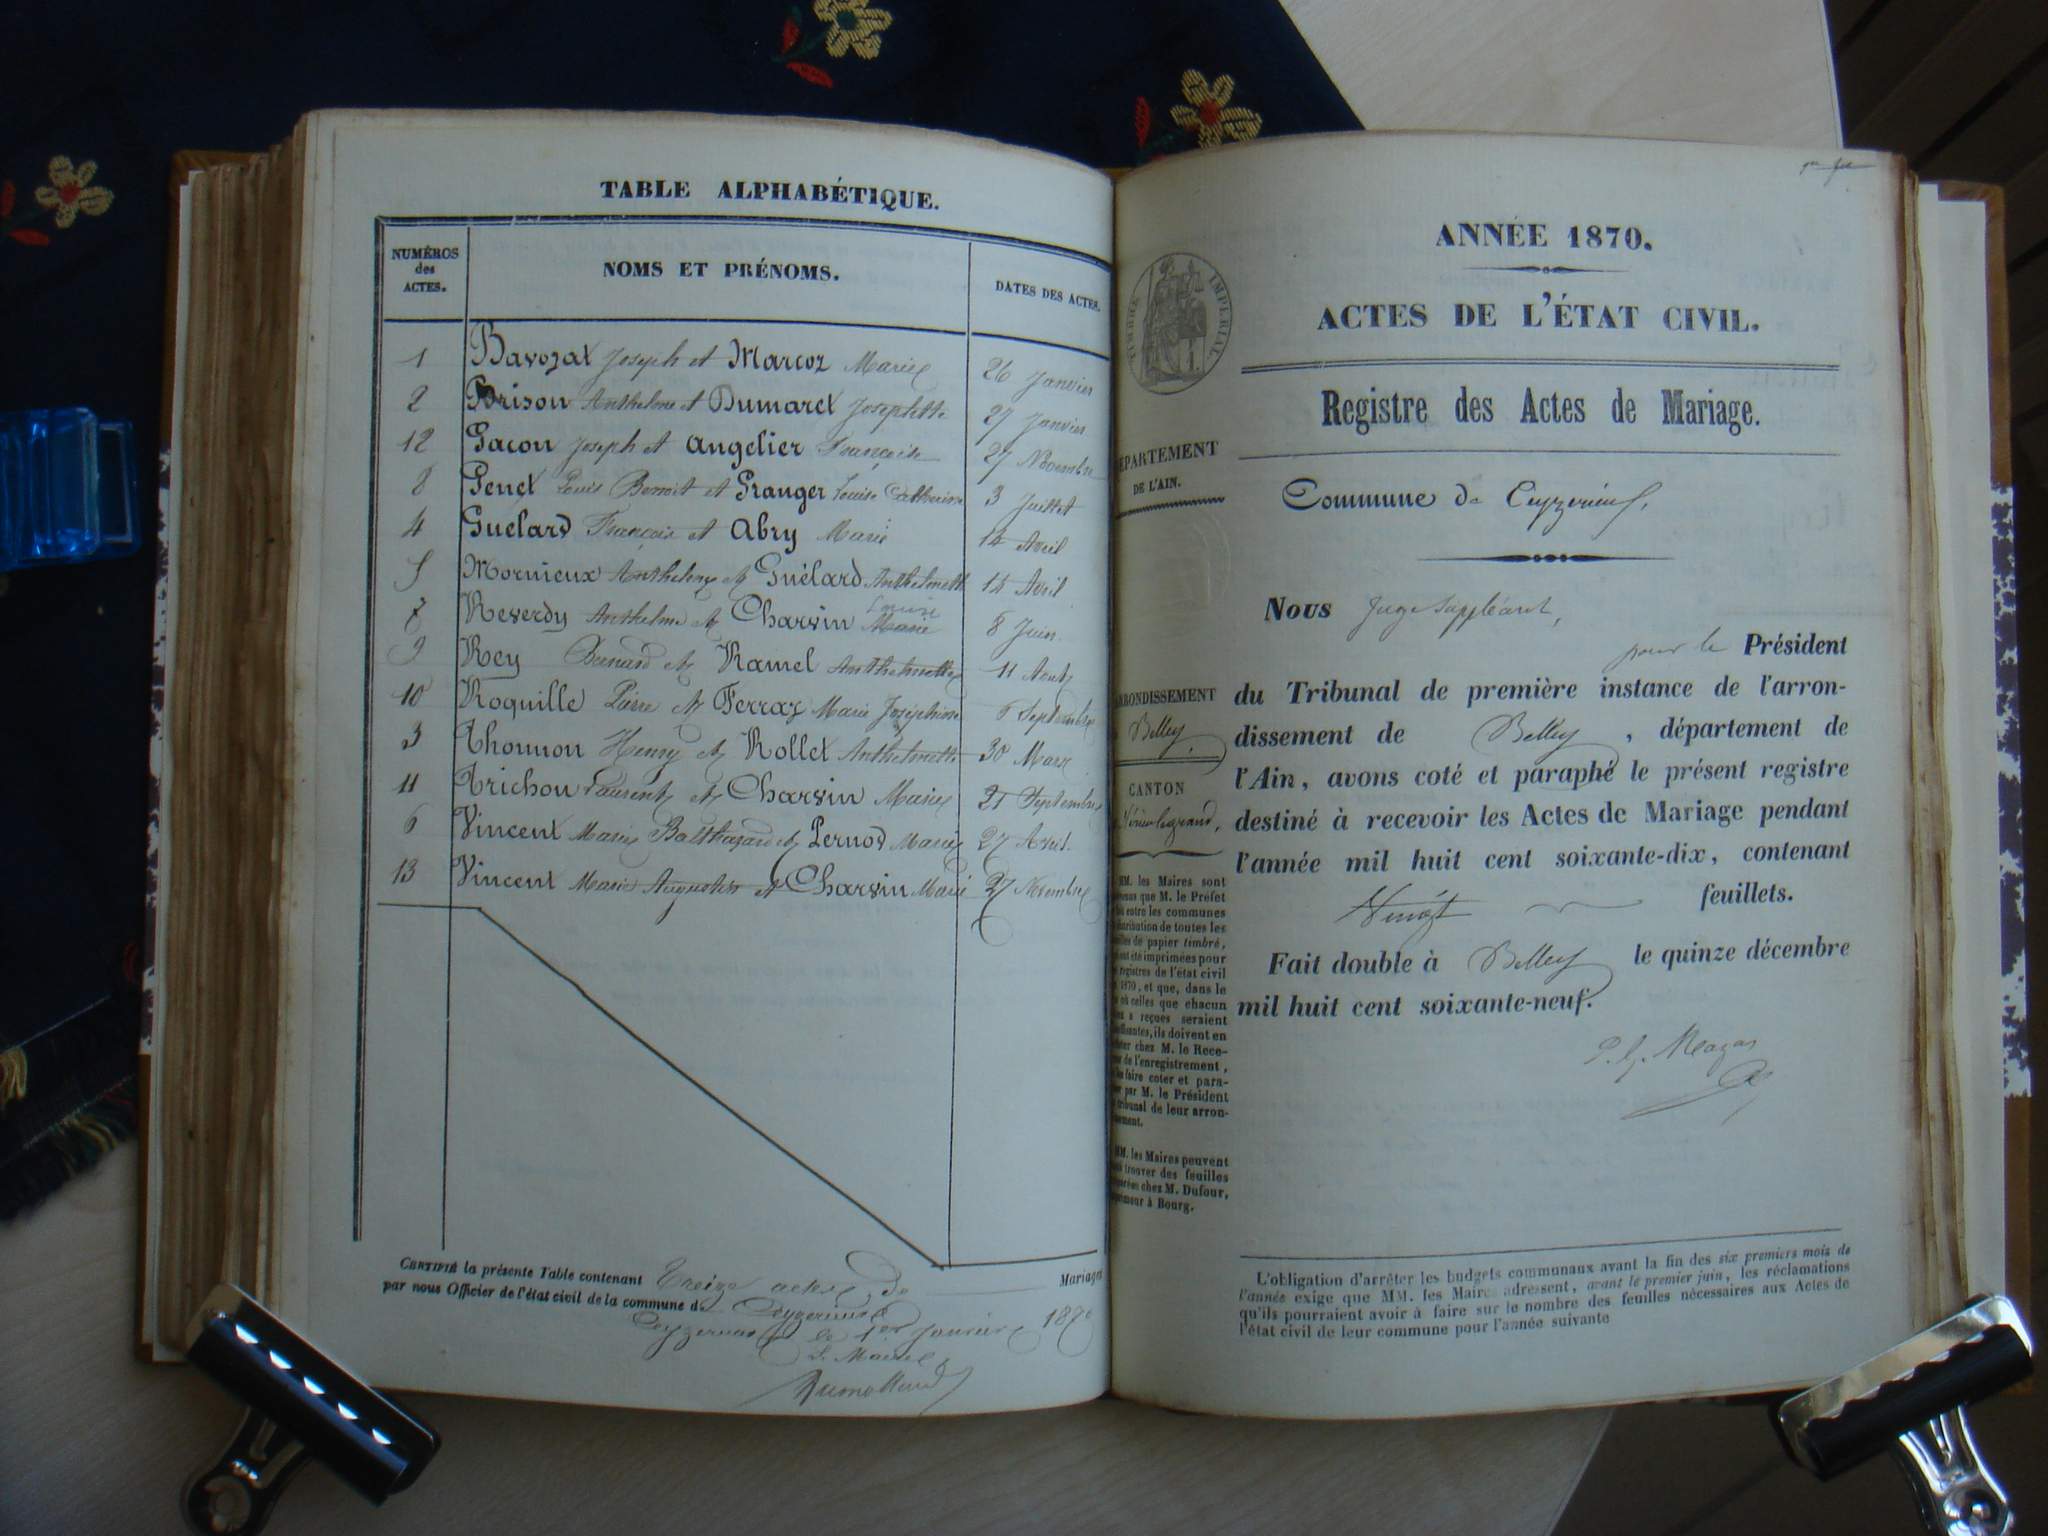 TABLE ALPHABÉTIQUE.
NUMÉROS des ACTES. NOMS ET PRÉNOMS. DATES DES ACTES.
1 Bavozat Joseph et Marcoz Marie 26 Janvier
2 Brison Anthelme et Dumaret Josephette 27 Janvier
12 Gacon Joseph et Angelier Françoise 27 Novembre
8 Genet Louis Benoit et Granger Louise Catherine 3 Juillet
4 Guélard François et Abry Marie 14 Avril
5 Mornieux Anthelme et Guélard Anthelmette 14 Avril
7 Reverdy Anthelme et Charvin Louise Marie 8 Juin
9 Rey Bernard et Ramel Anthelmette 11 Août
10 Roquille Pierre et Ferraz Marie Joséphine Septembre
3 Thonnon Henry et Rollet Anthelmette 30 Mars
11 Trichon Laurent et Charvin Marie 21 Septembre
6 Vincent Marie Balthazard et Pernod Marie 27 Avril
13 Vincent Marie Augustin et Charvin Marie 27 Novembre
CERTIFIÉ la présente Table contenant Treize actes de Mariages
par nous Officier de l'état civil de la commune de Ceyzerieu
Ceyzerieu le 1er Janvier 187
Le Maire
ANNÉE 1870.
TIMBRE IMPÉRIAL
ACTES DE L'ÉTAT CIVIL.
Registre des Actes de Mariage.
DÉPARTEMENT
DE L'AIN.
Commune de Ceyzerieu,
Nous Juge Suppléant,
pour le Président
du Tribunal de première instance de l'arron-
dissement de Belley, département de
l'Ain, avons coté et paraphé le présent registre
destiné à recevoir les Actes de Mariage pendant
l'année mil huit cent soixante-dix, contenant
Vingt feuillets.
Fait double à Belley le quinze décembre
mil huit cent soixante-neuf.
ARRONDISSEMENT
Belley
CANTON
MM. les Maires sont
que M. le Préfet
entre les communes
distribution de toutes les
de papier timbré,
ont été imprimées pour
registres de l'état civil
1870, et que, dans le
où celles que chacun
a reçues seraient
insuffisantes, ils doivent en
acheter chez M. le Rece-
de l'enregistrement,
faire coter et para-
par M. le Président
tribunal de leur arron-
dissement.
MM. les Maires peuvent
trouver des feuilles
chez M. Dufour,
imprimeur à Bourg.
L'obligation d'arrêter les budgets communaux avant la fin des six premiers mois de
l'année exige que MM. les Maires adressent, avant le premier juin, les réclamations
qu'ils pourraient avoir à faire sur le nombre des feuilles nécessaires aux Actes de
l'état civil de leur commune pour l'année suivante